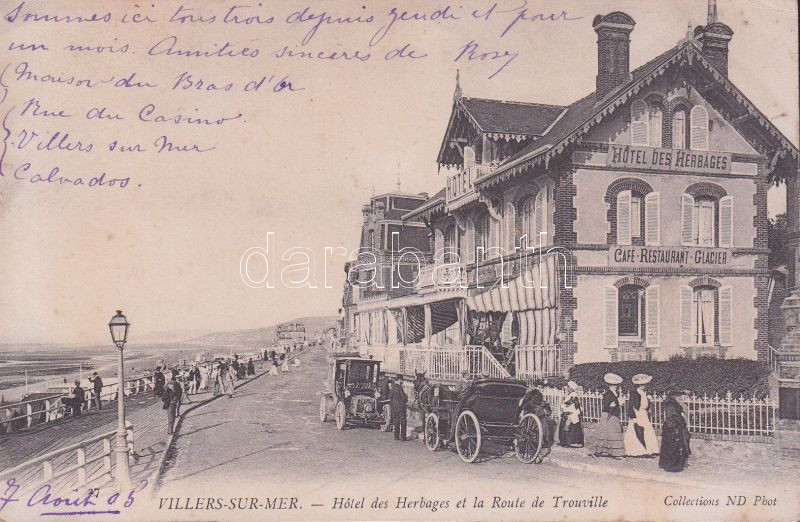 Sommes ici tous trois depuis Jeudi et pour
un mois. Amitiés sincères de Rosy
Maison du Bras d'Or
Rue du Casino.
Villers sur Mer
Calvados.
HÔTEL DES HERBAGES
CAFÉ-RESTAURANT-GLACIER
darabanth
7 Août 05
27 VILLERS-SUR-MER. — Hôtel des Herbages et la Route de Trouville
Collections ND Phot